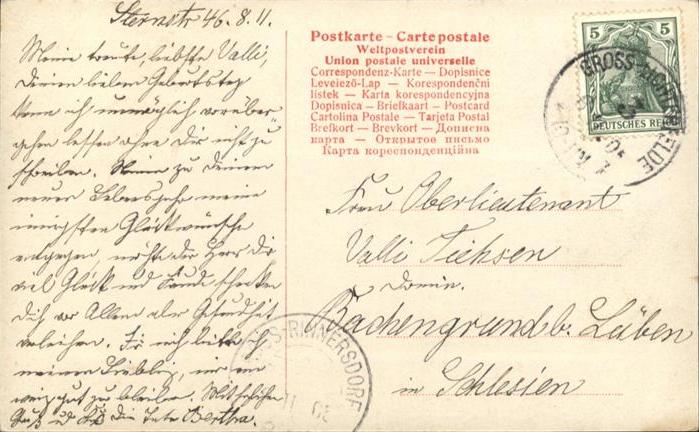 Sternstr 46. 8. 11.
Meine traute, liebste Valli,
Deinen lieben Geburtstag
kann ich unmöglich vorüber-
gehen lassen ohne Dir nicht zu
schreiben. Nimm zu Deinem
neuen Lebensjahr meine
innigsten Glückwünsche
entgegen, möchte der Herr Dir
viel Glück und Freude schenken
Dir vor Allem aber Gesundheit
verleihen. Für mich bitte ich
meinen Liebling, mir ein
wenig gut zu bleiben. Mit herzlichem
Gruß und Kuß Deine Tante Bertha.
Postkarte – Carte postale
Weltpostverein
Union postale universelle
Correspondenz-Karte — Dopisnice
Levelező-Lap — Korespondenční
lístek — Karta korespondencyjna
Dopisnica — Briefkaart — Postcard
Cartolina Postale — Tarjeta Postal
Brefkort — Brevkort — Дописна
карта — Открытое письмо
Карта кореспонденційна
5 5
DEUTSCHES REICH
GROSS-LICHTERFELDE
Frau Oberlieutenant
Valli Tichsen
Domin.
Bachengrund b. Lüben
in Schlesien
GROSS-RINNERSDORF